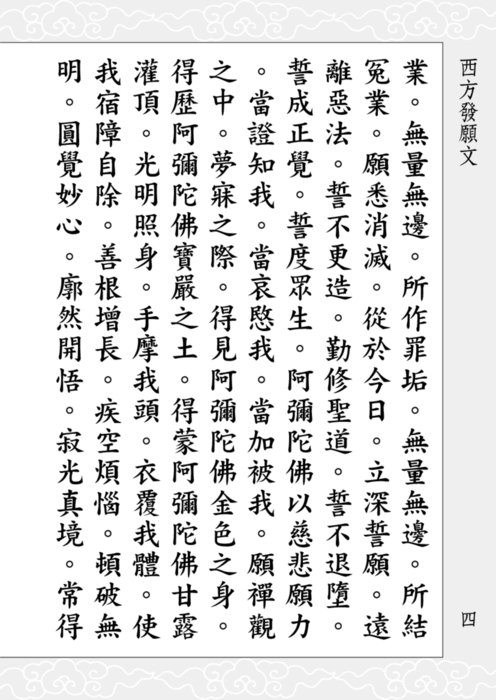 西方發願文
業。無量無邊。所作罪垢。無量無邊。所結
冤業。願悉消滅。從於今日。立深誓願。遠
離惡法。誓不更造。勤修聖道。誓不退墮。
誓成正覺。誓度眾生。阿彌陀佛以慈悲願力
。當證知我。當哀愍我。當加被我。願禪觀
之中。夢寐之際。得見阿彌陀佛金色之身。
得歷阿彌陀佛寶嚴之土。得蒙阿彌陀佛甘露
灌頂。光明照身。手摩我頭。衣覆我體。使
我宿障自除。善根增長。疾空煩惱。頓破無
明。圓覺妙心。廓然開悟。寂光真境。常得
四